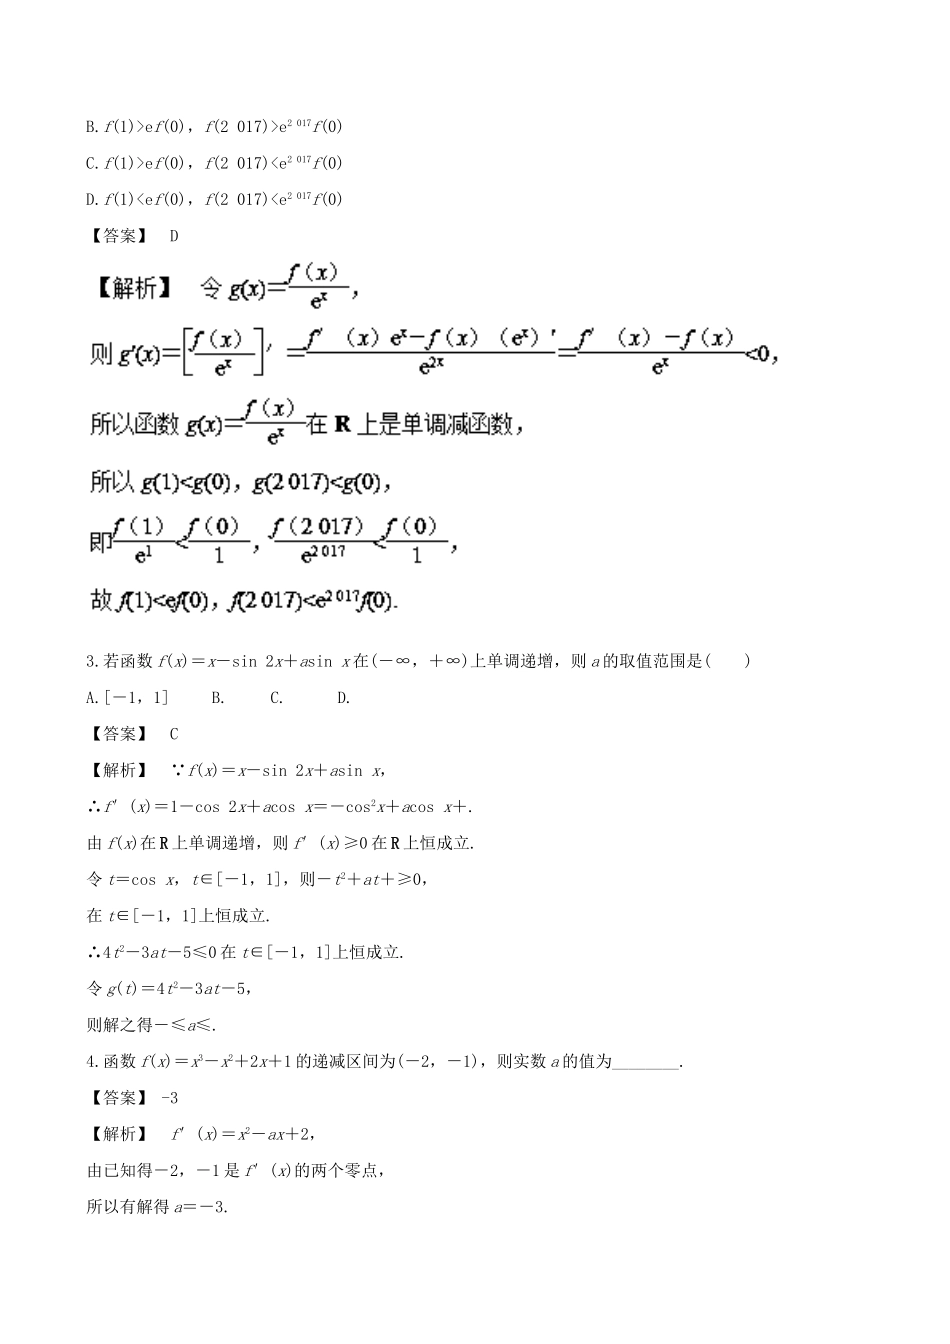 B.f(1)>ef(0)，f(2 017)>e²⁰¹⁷f(0)
C.f(1)>ef(0)，f(2 017)<e²⁰¹⁷f(0)
D.f(1)<ef(0)，f(2 017)<e²⁰¹⁷f(0)
【答案】 D
【解析】 令 g(x)=f（x）/eˣ，
则 g′(x)=[f（x）/eˣ]′=f′（x）eˣ-f（x）（eˣ）′/e²ˣ=f′（x）-f（x）/eˣ<0，
所以函数 g(x)=f（x）/eˣ在 R 上是单调减函数，
所以 g(1)<g(0)，g(2 017)<g(0)，
即f（1）/e¹<f（0）/1，f（2 017）/e²⁰¹⁷<f（0）/1，
故 f(1)<ef(0)，f(2 017)<e²⁰¹⁷f(0).
3.若函数 f(x)＝x－sin 2x＋asin x在(－∞，＋∞)上单调递增，则 a 的取值范围是( )
A.[－1，1] B. C. D.
【答案】 C
【解析】 ∵f(x)＝x－sin 2x＋asin x，
∴f′(x)＝1－cos 2x＋acos x＝－cos²x＋acos x＋.
由 f(x)在 R 上单调递增，则 f′(x)≥0 在 R 上恒成立.
令 t＝cos x，t∈[－1，1]，则－t²＋at＋≥0，
在 t∈[－1，1]上恒成立.
∴4t²－3at－5≤0 在 t∈[－1，1]上恒成立.
令 g(t)＝4t²－3at－5，
则解之得－≤a≤.
4.函数 f(x)＝x³－x²＋2x＋1 的递减区间为(－2，－1)，则实数 a 的值为________.
【答案】 -3
【解析】 f′(x)＝x²－ax＋2，
由已知得－2，－1 是 f′(x)的两个零点，
所以有解得 a＝－3.